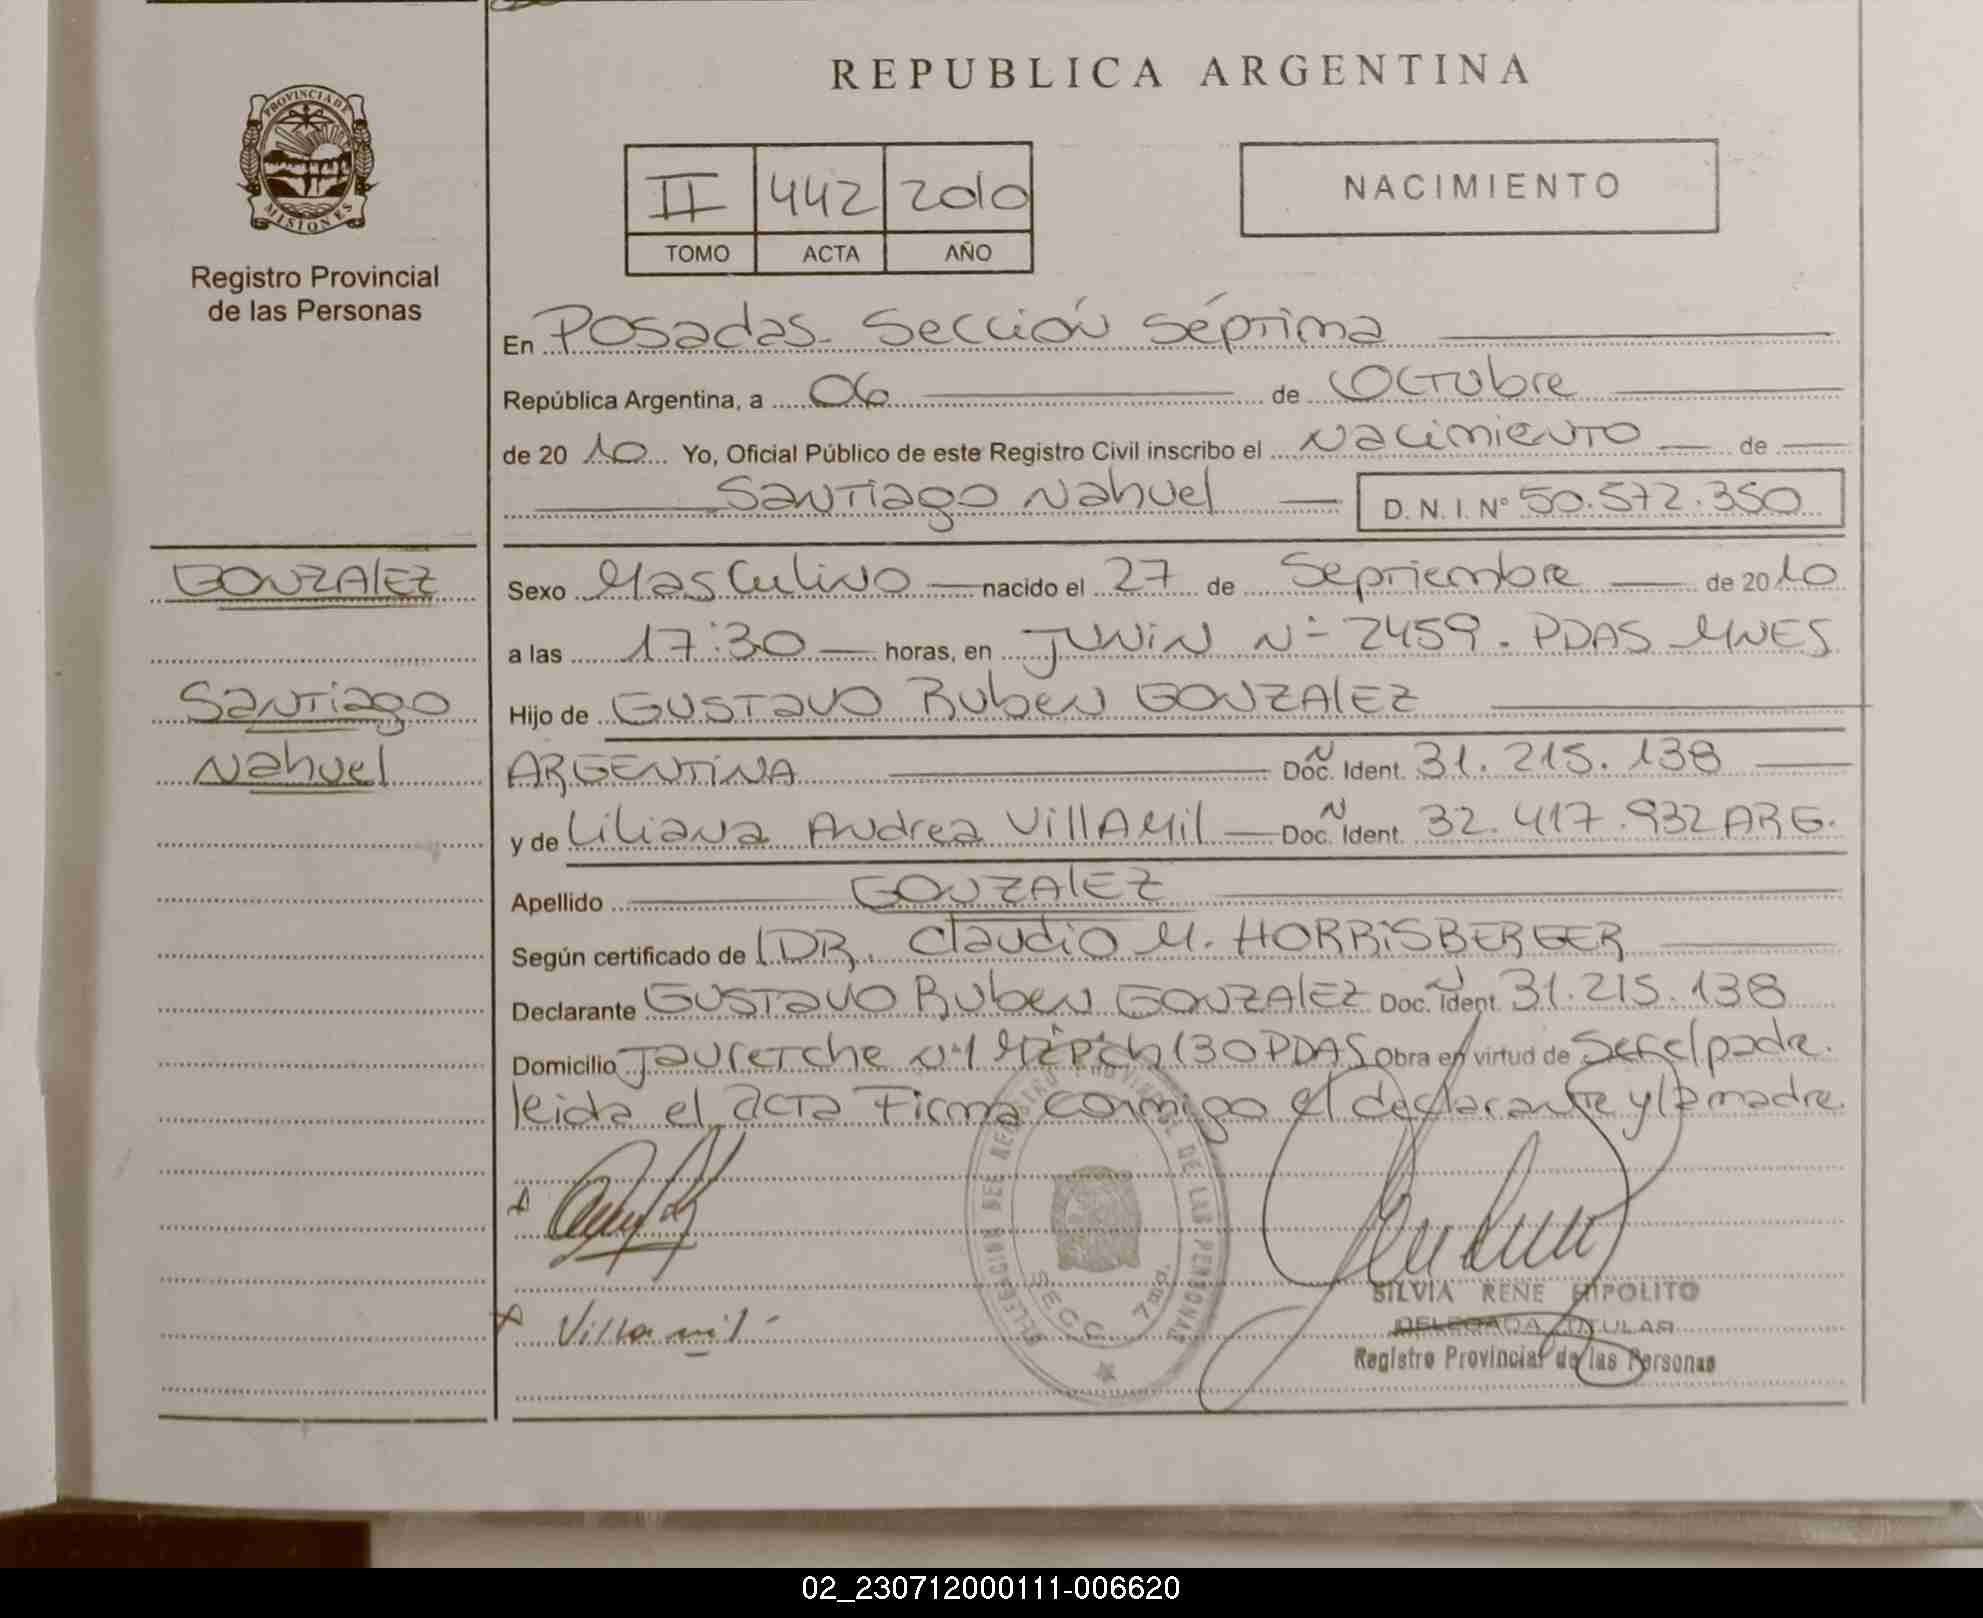 REPUBLICA ARGENTINA
PROVINCIA DE
MISIONES
Registro Provincial
de las Personas
II 442 2010
TOMO ACTA AÑO
NACIMIENTO
En Posadas - Sección Séptima
República Argentina, a 06 de Octubre
de 2010 Yo, Oficial Público de este Registro Civil inscribo el Nacimiento de
Santiago Nahuel D. N. I. Nº 50.572.350
GONZAlEZ
Santiago
Nahuel
Sexo Masculino nacido el 27 de Septiembre de 2010
a las 17:30 horas, en JUNIN Nº 2459. PDAS MNES
Hijo de GUSTAVO Ruben GONZAlEZ
ARGENTINA Doc. Ident. 31.215.138
y de Liliana Andrea VillAMil Doc. Ident. 32.417.932 ARG.
Apellido GONZAlEZ
Según certificado de DR. Claudio M. HORRISBERGER
Declarante GUSTAVO Ruben GONZAlEZ Doc. Ident. 31.215.138
Domicilio Jauretche Nº1 130 PDAS Obra en virtud de Ser el padre.
leida el acta Firma conmigo el declarante y la madre.
Villamil
DELEGACION DEL REGISTRO PROVINCIAL DE LAS PERSONAS
SECC. 7ma.
SILVIA RENE HIPOLITO
DELEGADA TITULAR
Registro Provincial de las Personas
02_230712000111-006620